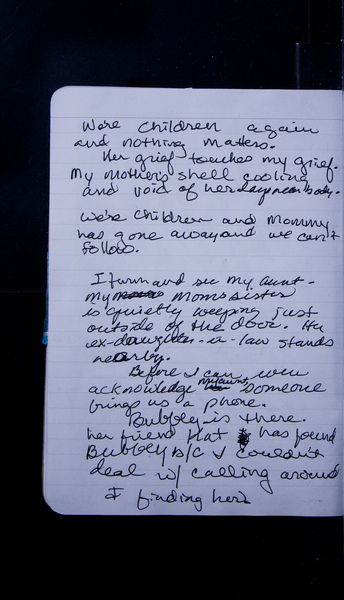 We're children again
and nothing matters.
Her grief touches my grief.
My mothers shell cooling
and void of her body.
We're children and Mommy
has gone away and we can't
follow.
I turn and see my aunt-
my moms sister
is quietly weeping just
outside of the door. Her
ex-daughter-in-law stands
nearby.
Before I can even
acknowledge my aunt, someone
brings us a phone.
Bubbly is there.
her friend that has found
Bubbly b/c I couldn't
deal w/ calling around
& finding her.